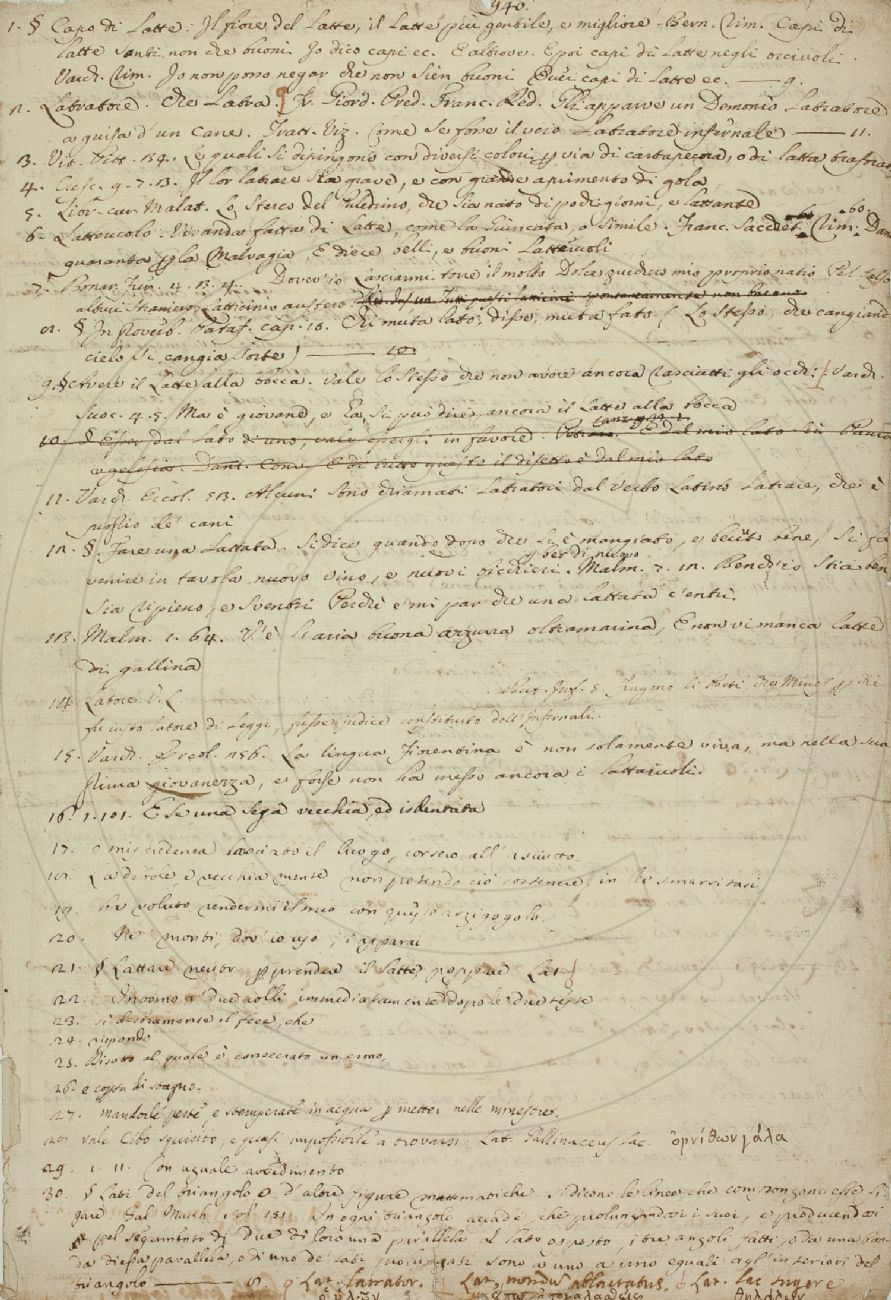 940.
1. § Capo di Latte: Il fiore del Latte, il Latte più gentile, e migliore. Bern. Rim. Capi di
latte santi, non che buoni. Io dico capi ec. E altrove. E poi capi di latte negli orciuoli.
Varch. Rim. Io non posso negar che non sien buoni Quei capi di latte ec. — 9.
2. Latratore. Che Latra. Fr. Giord. Pred. Franc. Red. Gli apparve un Demonio Latratore
a guisa d'un Cane. Tratt. Viz. Come se fosse il vero Latratore infernale — 11.
3. Vit. Pitt. 134. Le quali si dipingono con diversi colori p via di cartapecora, o di latta
4. Cresc. 9. 7. 13. Il lor latrare sia grave, e con grande aprimento di gola
5. Libr. cur. Malat. Lo sterco del Puledrino, che sia nato di pochi giorni, e lattante
6. Latteruolo. Vivanda fatta di Latte, come la Giuncata, o simile. Franc. Sacchet. Rim. 60. Dan
quaranta p la Malvagia, E diece belli, e buoni Latteruoli
7. Bonar. Fier. 4. 13. 4. Dover io lasciarmi torre il molto Dolce zucchero mio proprio natio Pel
altrui straniero, latticinio austero
8. § In Proverb. Pataf. cap. 10. Chi muta lato, disse, muta fato (Lo stesso, che cangiand
cielo si cangia sorte) — 10
9. § Avere il Latte alla bocca. Vale lo stesso che non avere ancora rasciutti gli occhi. Varch.
Suoc. 4. 5. Ma è giovane, e ha, si può dire, ancora il Latte alla bocca
10. § Esser dal lato d'uno, vale essergli in favore. Petrar. Canz. E dal mio lato sia Paura
e gelosia. Dant. Conv. E di tutto questo il difetto è dal mio lato
11. Varch. Ercol. 53. Alcuni sono chiamati Latratori dal verbo Latino Latrare, che è
proprio de' cani
12. §. Fare una Lattata. Si dice quando dopo che si è mangiato, e beuto bene, si fa
venire in tavola nuovo vino, e nuovi bicchieri p ber di nuovo. Malm. 7. 12. Bench'io stia ben
sia ripieno, e sventri Perchè e' mi par che una lattata c'entri.
13. Malm. 1. 64. V'è l'aria buona azzurra oltramarina, E non vi manca latte
di gallina
14. Latore. V. L. But. Inf. 5. Fingono li Poeti che Minos p che
fu iusto latore di Leggi, fusse judice constituto dell'Infernali.
15. Varch. Ercol. 256. La lingua Fiorentina è non solamente viva, ma nella sua
prima giovanezza, e forse non ha messo ancora i lattaiuoli.
16. 1. 101. E se una sega vecchia, ed isdentata
17. o miscredenza lasciato il luogo, corsero all'asciutto.
18. La debole, e vecchia mente non potendo ciò sostenere, in
19. ha voluto rendermi il mio con questo arzigogolo.
20. Ne' morbi, dov'io uso, i apparai
21. § Lattare neutr. p prendere il latte, poppare Lat.
22. Intorno a' due colli immediatamente dopo le due teste
23. si destramente il fece, che
24. rispondo
25. Disotto al quale è consecrato un ermo,
26. e coppa di stagno.
27. mandorle peste e stemperate in acqua p metter nelle minestre.
28. Vale Cibo squisito, e quasi impossibile a trovarsi. Lat. Gallinaceus lac. ὀρνίθων γάλα
29. 1. 11. Con uguale avvedimento
30. § Lati del triangolo o d'altre figure matematiche si dicono le linee che compongono esse fi-
gure. Gal. Math. sol. 151. In ogni triangolo accade, che prolungandovi i suoi, e producendovi
pel segamento di due di loro una parallela al lato opposto, i tre angoli fatti o da una banda
da d'essa parallela, o di uno de' lati prolungati sono a uno a uno eguali agl'interiori del
triangolo — 8. Lat. latrator. Lat. mondus ablactatus. Lat. lac sugere
θηλάζειν